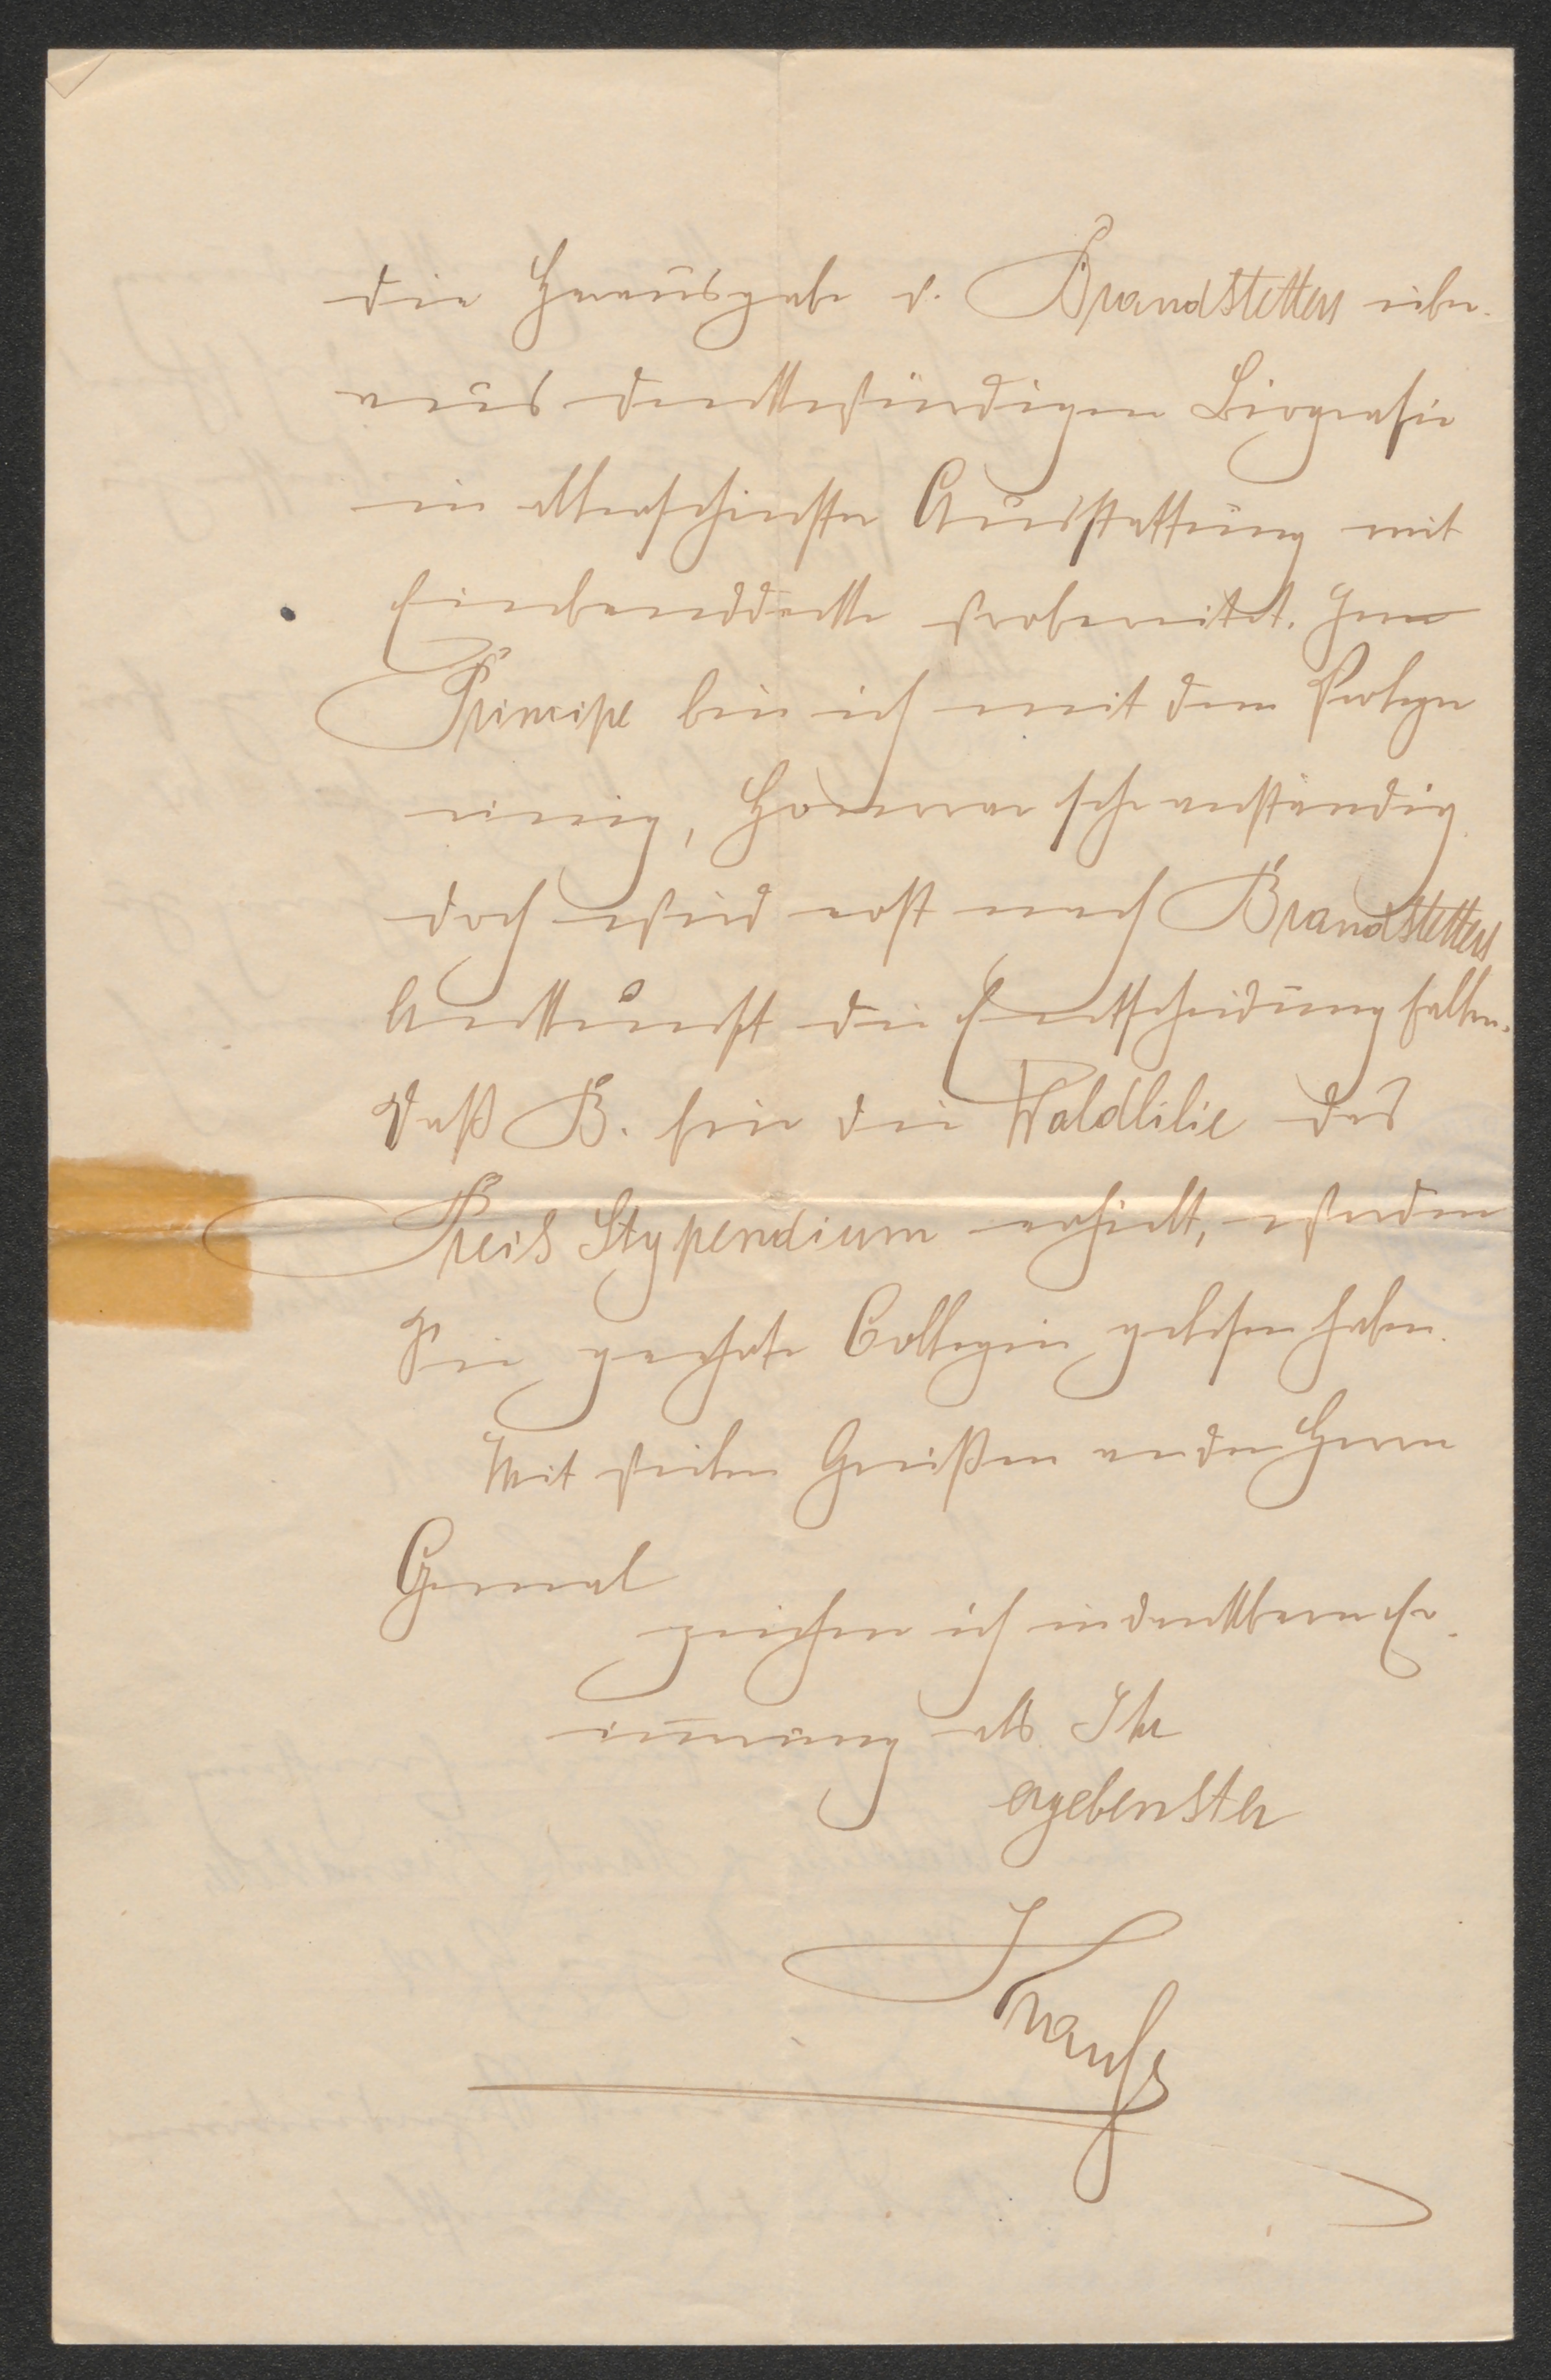 die Herausgabe v. Brandstetters über-
aus denkwürdigen Biografie
in allerschönster Ausstattung mit
Einbanddecke vorbereitet. Im
Principe bin ich mit dem Verleger
einig, Honorar sehr anständig
doch wird erst nach Brandstetters
Ankunft die Entscheidung fallen.
Daß B. für die Waldlilie das
Preis Stypendium erhielt, werden
Sie geehrte Collegin gelesen haben.
Mit vielen Grüßen an den Herrn
Gemal
zeichne ich in dankbarer Er-
innerung als Ihr
ergebenster
Krauß